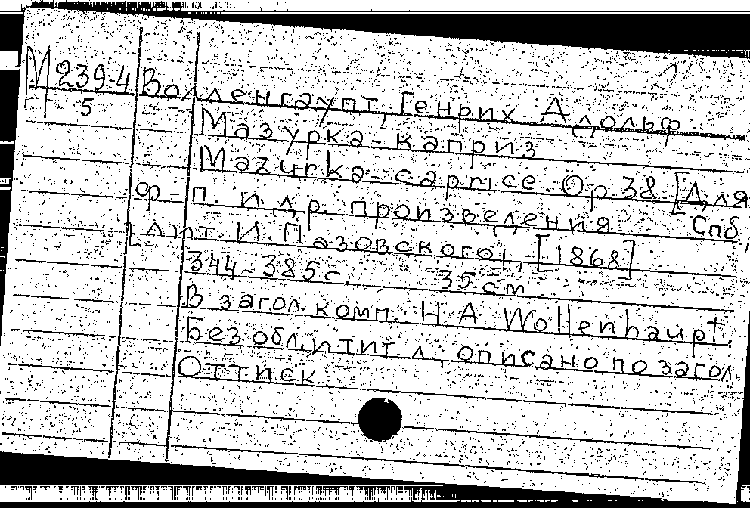 М 239-4 Волленгаупт, Генрих Адольф
5
Мазурка-каприз
Mazurka-caprice. Op 38 [Для
ф-п. и др. произведения. Спб,
Лит. И. Пазовского, [1868]
344-385 с. 35 см.
В загол. комп. H. A. Wollenhaupt.
Без обл. и тит л., описано по загол.
Оттиск